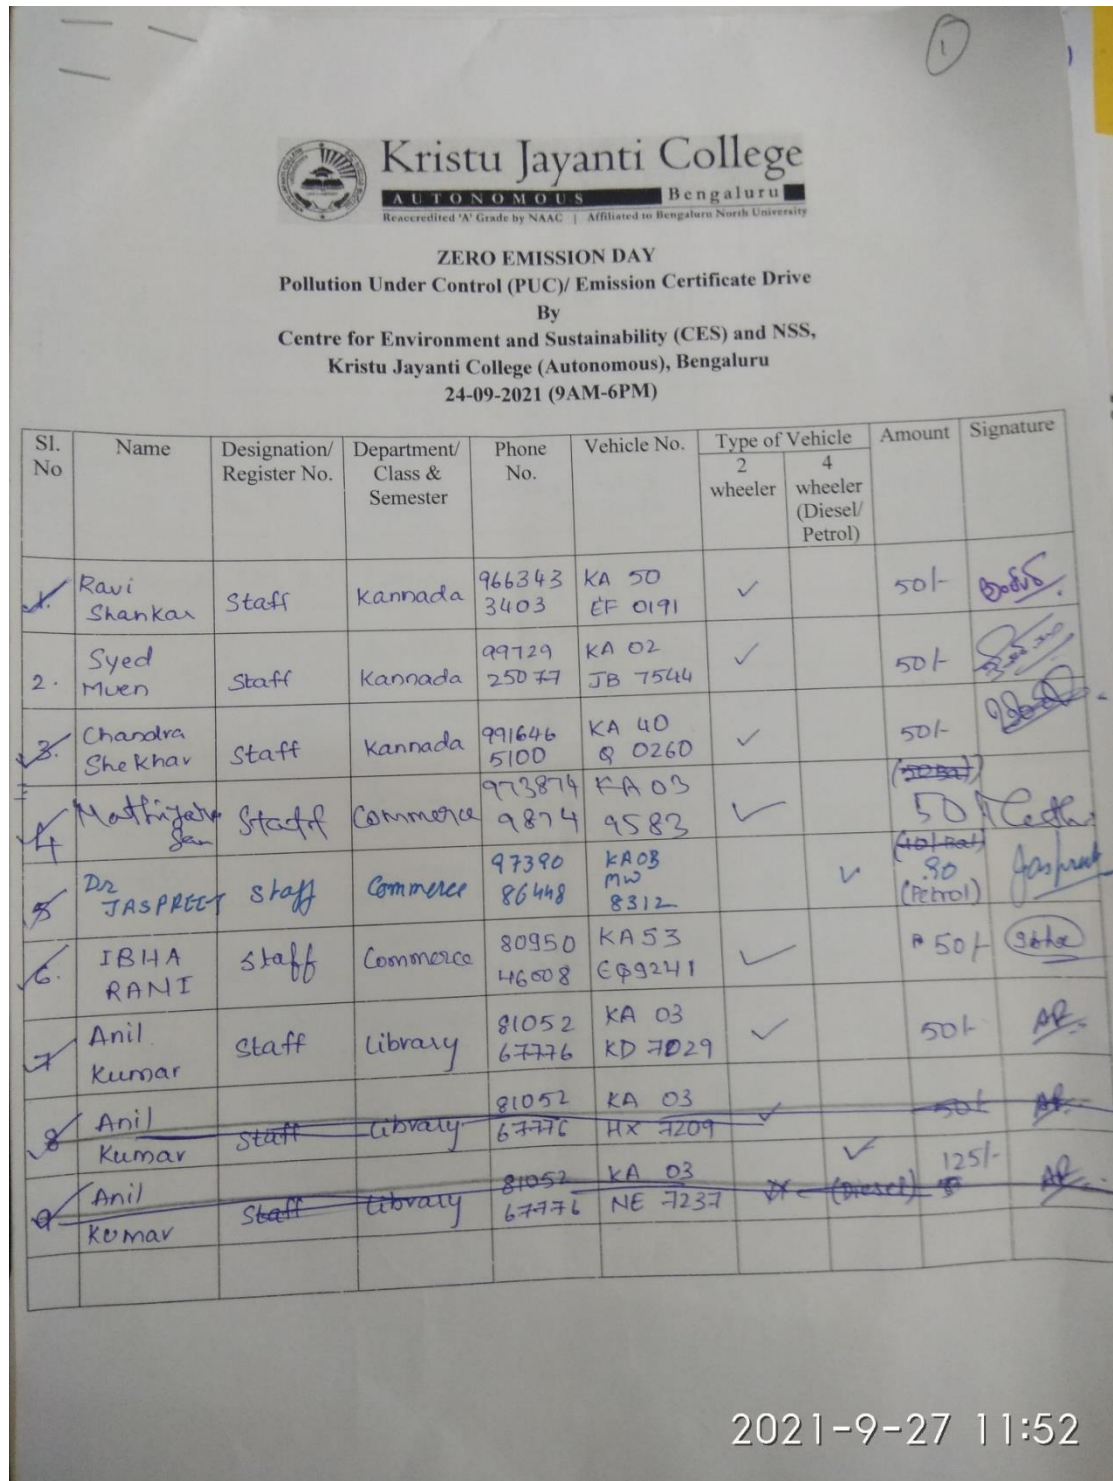 1
Kristu Jayanti College
AUTONOMOUS Bengaluru
Reaccredited 'A' Grade by NAAC | Affiliated to Bengaluru North University
ZERO EMISSION DAY
Pollution Under Control (PUC)/ Emission Certificate Drive
By
Centre for Environment and Sustainability (CES) and NSS,
Kristu Jayanti College (Autonomous), Bengaluru
24-09-2021 (9AM-6PM)
Sl. No Name Designation/ Register No. Department/ Class & Semester Phone No. Vehicle No. Type of Vehicle Amount Signature
2 wheeler 4 wheeler (Diesel/ Petrol)
1. Ravi Shankar Staff Kannada 966343 3403 KA 50 EF 0191 ✓ 50/-
2. Syed Muen Staff Kannada 99729 25077 KA 02 JB 7544 ✓ 50/-
3. Chandra Shekhar Staff Kannada 991646 5100 KA 40 Q 0260 ✓ 50/-
4 Staff Commerce 973874 9874 KA 03 9583 ✓ 50
5 Dr JASPREET Staff Commerce 97390 86448 KA03 MW 8312 ✓ 90 (Petrol) Jaspreet
6. IBHA RANI Staff Commerce 80950 46008 KA53 EQ9241 ✓ 50/- Ibha
7 Anil Kumar Staff Library 81052 67776 KA 03 KD 7029 ✓ 50/-
8 Anil Kumar Staff Library 81052 67776 KA 03 HX 7209 ✓ 50/-
9 Anil Kumar Staff Library 81052 67776 KA 03 NE 7237 ✓ (Diesel) 125/-
2021-9-27 11:52